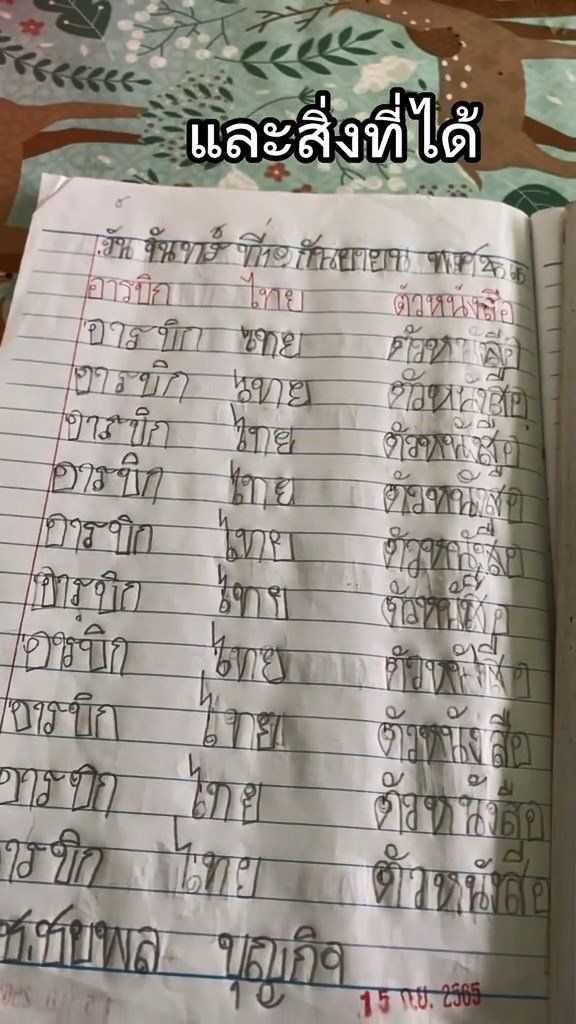 และสิ่งที่ได้
วัน จันทร์ ที่๑๒ กันยายน พ.ศ ๒๕๖๕
อารบิก ไทย ตัวหนังสือ
อาระบิก ไทย ตัวหนังสือ
อาระบิก ไทย ตัวหนังสือ
อาระบิก ไทย ตัวหนังสือ
อาระบิก ไทย ตัวหนังสือ
อาระบิก ไทย ตัวหนังสือ
อาระบิก ไทย ตัวหนังสือ
อาระบิก ไทย ตัวหนังสือ
อาระบิก ไทย ตัวหนังสือ
อาระบิก ไทย ตัวหนังสือ
าระบิก ไทย ตัวหนังสือ
ช.ชยพล บุญกิจ
15 ก.ย. 2565